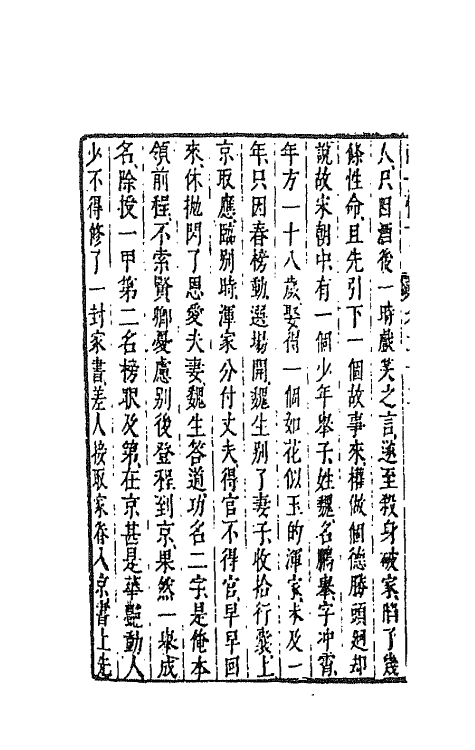 人只因酒後一時戲笑之言遂至殺身破家陷了幾
條性命且先引下一個故事來權做個德勝頭廻却
說故宋朝中有一個少年舉子姓魏名鵬舉字冲霄
年方一十八歲娶得一個如花似玉的渾家未及一
年只因春榜動選場開魏生別了妻子收拾行囊上
京取應臨別時渾家分付丈夫得官不得官早早回
來休拋閃了恩愛夫妻魏生答道功名二字是俺本
領前程不索賢卿憂慮別後登程到京果然一舉成
名除授一甲第二名榜眼及第在京甚是華艷動人
少不得修了一封家書差人接取家眷入京書上先